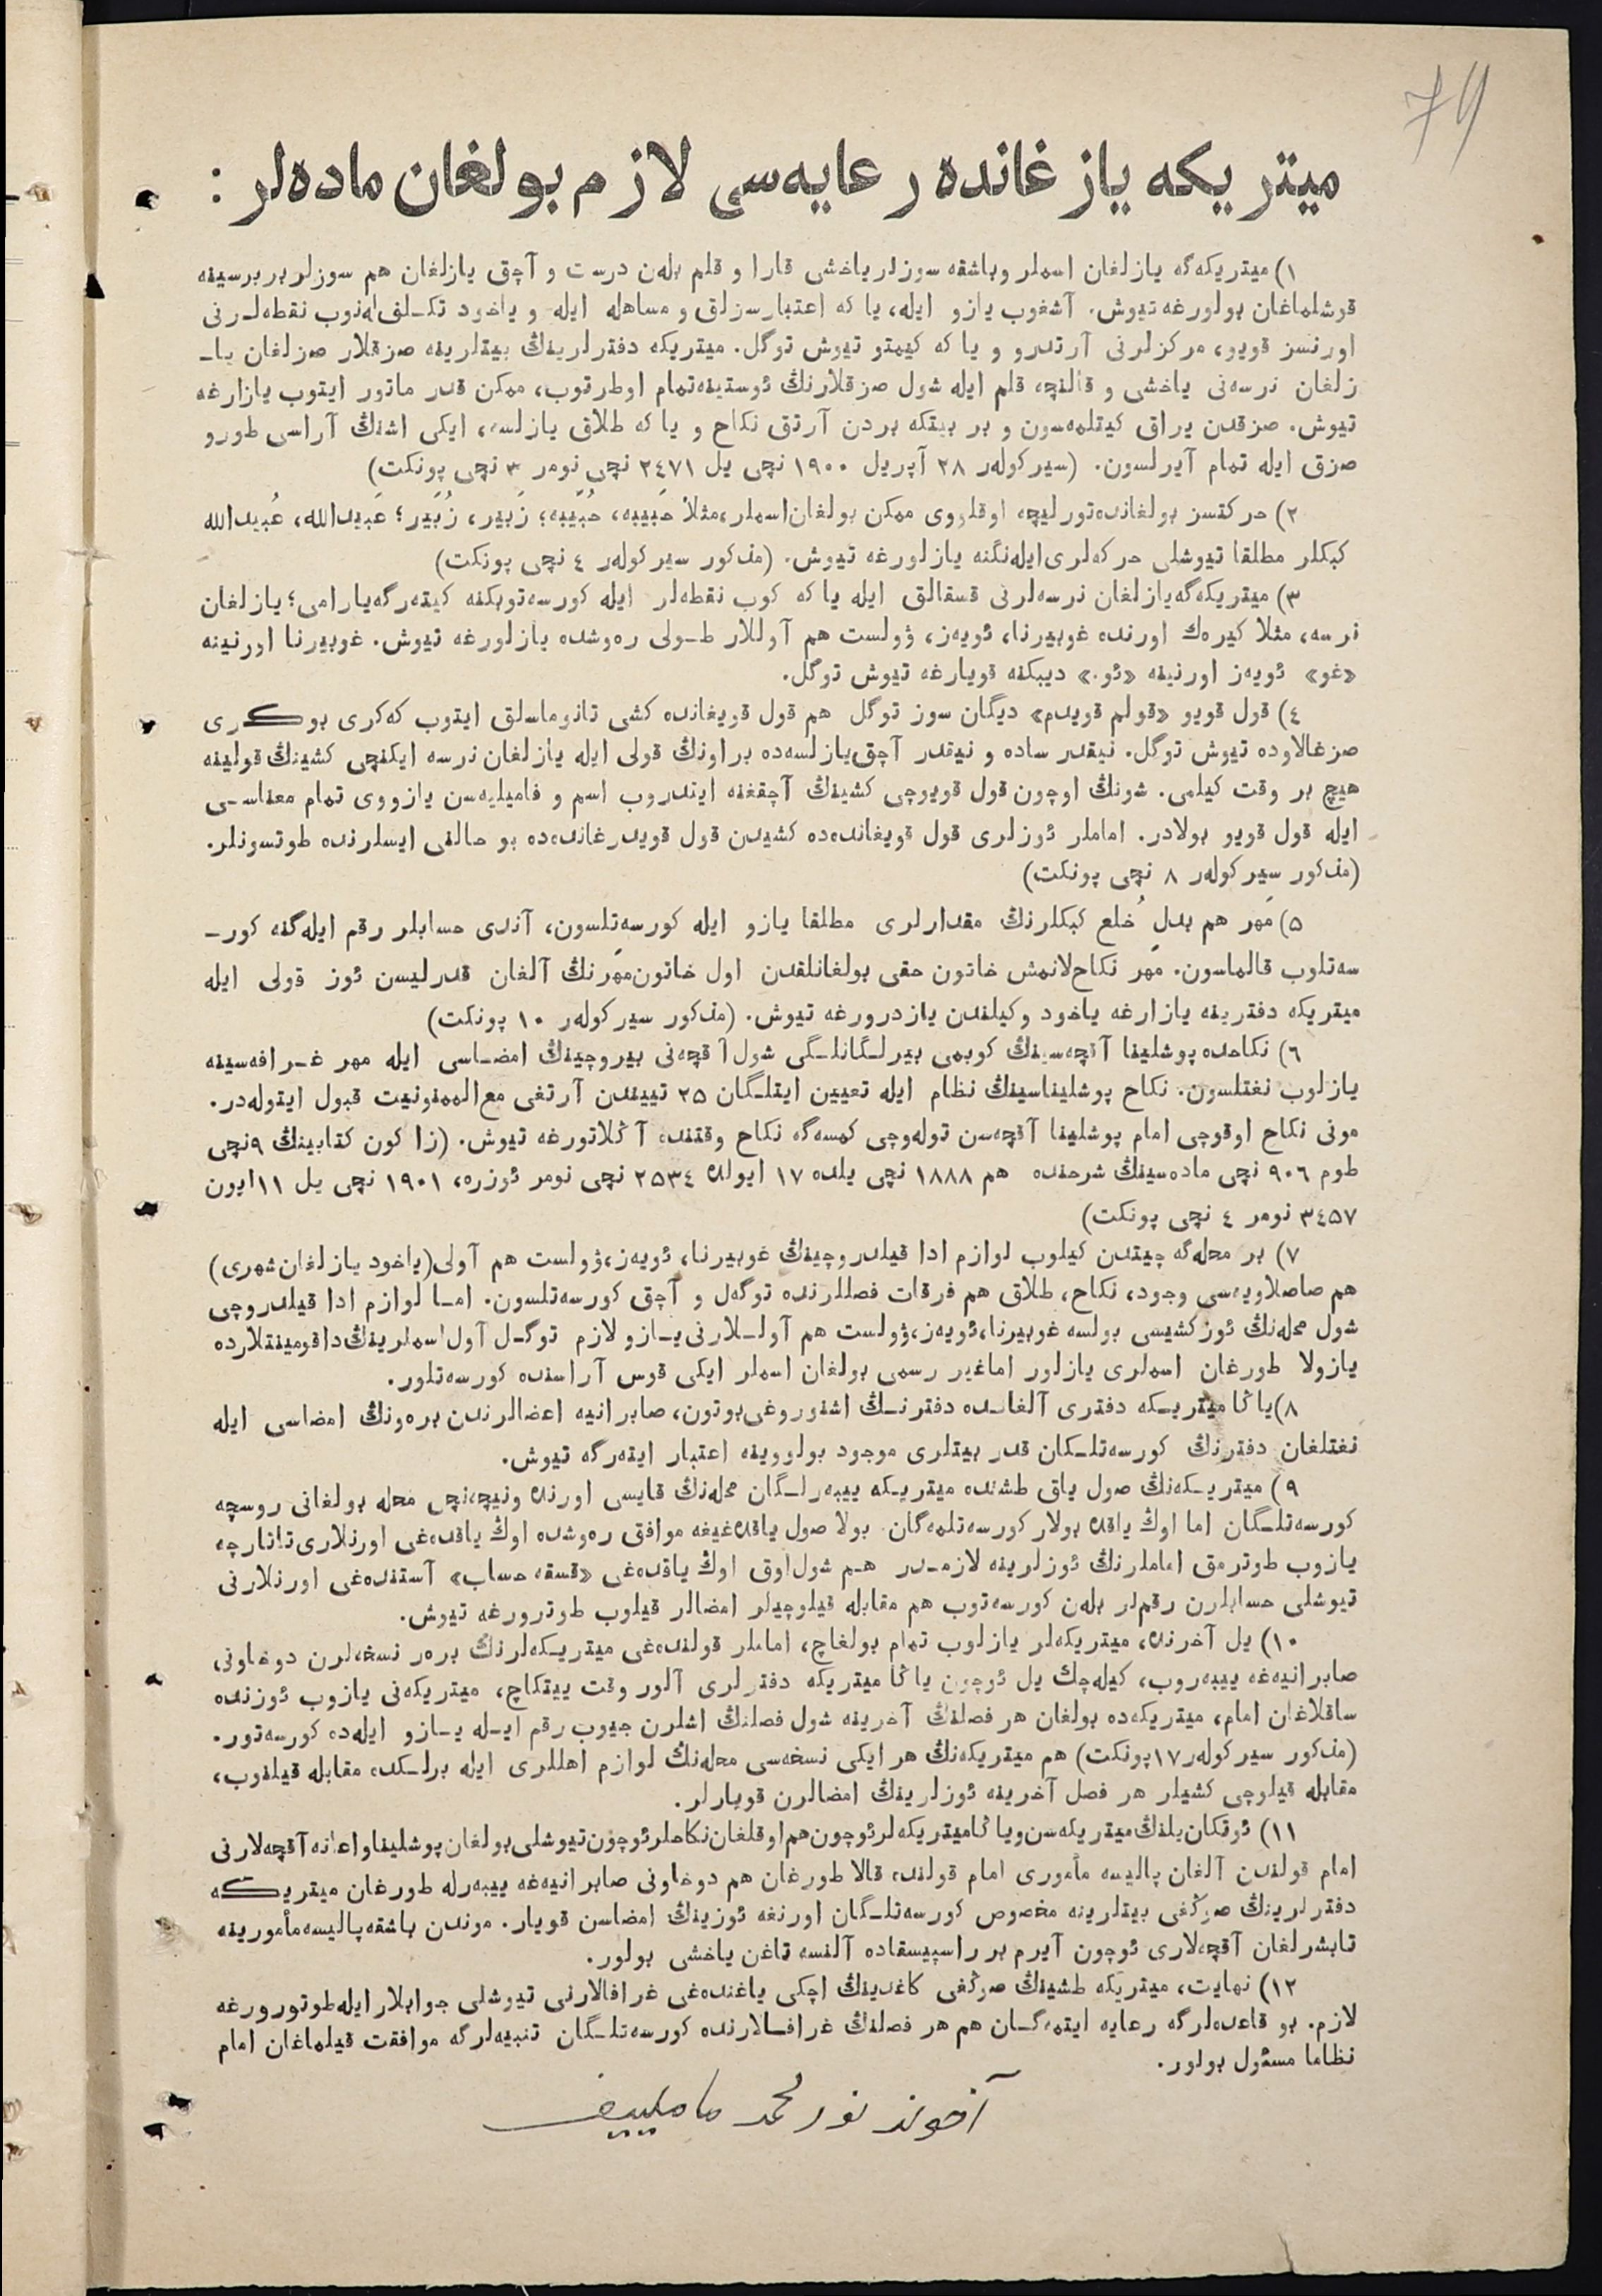 74
میتریكه یازغانده رعایه‌سی لازم بولغان ماده‌لر :
۱) میتریكه‌گه یازلغان اسملر وباشقه سوزلر یاخشی قارا و قلم بله‌ن درست و آچق یازلغان هم سوزلر بربرسینه
قوشلماغان بولورغه تیوش. آشغوب یازو ایله، یا كه اعتبارسزلق و مساهله ایله و یاخود تكـلف‌له‌نوب نقطه‌لـرنی
اورنسز قویو، مركزلرنی آرتدرو و یا كه كیمتو تیوش توگل. میتریكه دفترلرینڭ بیتلرینه صزقلار صزلغان یا‌ـ
زلغان نرسه‌نی یاخشی و قالنچه قلم ایله شول صزقلارنڭ ئوستینه‌تمام اوطرتوب، ممكن قدر ماتور ایتوب یازارغه
تیوش. صزقدن یراق كیتلمه‌سون و بر بیتكه بردن آرتق نكاح و یا كه طلاق یازلسه، ایكی اشنڭ آراسی طورو
صزق ایله تمام آیرلسون. (سیركولەر ۲۸ آپریل ۱۹۰۰ نچی یل ۲٤۷۱ نچی نومر ۳ نچی پونكت)
۲) حركتسز بولغانده‌تورلیچه اوقلووی ممكن بولغان‌اسملر،مثلا حَبیبه، حُبَیبه؛ زَبیر، زُبَیر؛ عَبیدالله، عُبیدالله
كبكلر مطلقا تیوشلی حركه‌لری‌ایله‌نگنه یازلورغه تیوش. (مذكور سیركولەر ٤ نچی پونكت)
۳) میتریكه‌گه‌یازلغان نرسه‌لرنی قسقالق ایله یا كه كوب نقطه‌لر ایله كورسه‌توبكنه كیته‌رگه‌یارامی؛ یازلغان
نرسه، مثلا كیره‌ك اورنده غوبیرنا، ئویه‌ز، ۋولست هم آوللار طـولی ره‌وشده یازلورغه تیوش. غوبیرنا اورنینه
«غو» ئویه‌ز اورنینه «ئو.» دیبكنه قویارغه تیوش توگل.
٤) قول قویو «قولم قویدم» دیگان سوز توگل هم قول قویغانده كشی تانوماسلق ایتوب كه‌كری بوكـری
صزغالاوده تیوش توگل. نیقدر ساده و نیقدر آچق‌یازلسه‌ده براونڭ قولی ایله یازلغان نرسه ایكنچی كشینڭ قولینه
هیچ بر وقت كیلمی. شونڭ اوچون قول قویوچی كشینڭ آچقغنه ایتدروب اسم و فامیلیه‌سن یازووی تمام معناسـی
ایله قول قویو بولادر. اماملر ئوزلری قول قویغانده‌ده كشیدن قول قویدرغانده‌ده بو حالنی ایسلرنده طوتسونلر.
(مذكور سیركولەر ۸ نچی پونكت)
۵) مَهر هم بدلِ خُلع كبكلرنڭ مقدارلری مطلقا یازو ایله كورسه‌تلسون، آندی حسابلر رقم ایله‌گنه كور‌ـ
سه‌تلوب قالماسون. مَهر نكاح‌لانمش خاتون حقی بولغانلقدن اول خاتون‌مَهرنڭ آلغان قدرلیسن ئوز قولی ایله
میتریكه دفترینه یازارغه یاخود وكیلندن یازدرورغه تیوش. (مذكور سیركولەر ۱۰ پونكت)
٦) نكاحده پوشلینا آقچه‌سینڭ كوبمی بیرلـگانلـگی شول آقچه‌نی بیروچینڭ امضـاسی ایله مهر غـرافه‌سینه
یازلوب نغتلسون. نكاح پوشلیناسینڭ نظام ایله تعیین ایتلـگان ۲۵ تییندن آرتغی مع‌الممنونیت قبول ایتوله‌در.
مونی نكاح اوقوچی امام پوشلینا آقچه‌سن توله‌وچی كمسه‌گه نكاح وقتنده آڭلاتورغه تیوش. (زاكون كتابینڭ ۹نچی
طوم ۹۰٦ نچی ماده‌سینڭ شرحنده هم ۱۸۸۸ نچی یلده ۱۷ ایولده ۲۵۳٤ نچی نومر ئوزره، ۱۹۰۱ نچی یل ۱۱ایون
۳٤۵۷ نومر ٤ نچی پونكت)
۷) بر محله‌گه چیتدن كیلوب لوازم ادا قیلدروچینڭ غوبیرنا، ئویه‌ز،ۋولست هم آولی(یاخود یازلغان‌شهری)
هم صاصلاویه‌سی وجود، نكاح، طلاق هم فرقات فصللرنده توگه‌ل و آچق كورسه‌تلسون. امـا لوازم ادا قیلدروچی
شول محله‌نڭ ئوزكشیسی بولسه غوبیرنا،ئویه‌ز،ۋولست هم آولـلارنی‌یـازو لازم توگـل آول‌اسملرینڭ‌داقومینتلارده
یازولا طورغان اسملری یازلور اماغیر رسمی بولغان اسملر ایكی قوس آراسنده كورسه‌تلور.
۸)یاڭا میتریـكه دفتری آلغانـده دفترنـڭ اشنوروغی‌بوتون، صابرانیه اعضالرندن بره‌ونڭ امضاسی ایله
نغتلغان دفترنڭ كورسه‌تلـكان قدر بیتلری موجود بولووینه اعتبار ایته‌رگه تیوش.
۹) میتریـكه‌نڭ صول یاق طشنده میتریـكه ییبه‌رلـگان محله‌نڭ قایسی اورنده ونیچه‌نچی محله بولغانی روسچه
كورسه‌تلـگان اما اوڭ یاقده بولار كورسه‌تلمه‌گان. بولا صول یاقده‌غیغه موافق ره‌وشده اوڭ یاقده‌غی اورنلاری‌تاتارچه
یازوب طوترمق اماملرنڭ ئوزلرینه لازمـدر هـم شول‌اوق اوڭ یاقده‌غی «قسقه حساب» آستنده‌غی اورنلارنی
تیوشلی حسابلرن رقم‌لر بله‌ن كورسه‌توب هم مقابله قیلوچیلر امضالر قیلوب طوترورغه تیوش.
۱۰) یل آخرنده، میتریكه‌لر یازلوب تمام بولغاچ، اماملر قولنده‌غی میتریـكه‌لرنڭ بره‌ر نسخه‌لرن دوخاونی
صابرانیه‌غه ییبه‌روب، كیله‌چك یل ئوچون یاڭا میتریكه دفترلری آلور وقت ییتكاچ، میتریكه‌نی یازوب ئوزنده
ساقلاغان امام، میتریكه‌ده بولغان هر فصلنڭ آخرینه شول فصلنڭ اشلرن جیوب رقم ایـله یـازو ایله‌ده كورسه‌تور.
(مذكور سیركولەر ۱۷پونكت) هم میتریكه‌نڭ هر ایكی نسخه‌سی محله‌نڭ لوازم اهللری ایله برلـكده مقابله قیلنوب،
مقابله قیلوچی كشیلر هر فصل آخرینه ئوزلرینڭ امضالرن قویارلر.
۱۱) ئوتكان‌یلنڭ‌میتریكه‌سن‌ویاڭا‌میتریكه‌لرئوچون‌هم‌اوقلغان‌نكاحلرئوچون‌تیوشلی‌بولغان‌پوشلیناواعانه‌آقچه‌لارنی
امام قولندن آلغان پالیسه مأموری امام قولنده قالا طورغان هم دوخاونی صابرانیه‌غه ییبه‌رله طورغان میتریكـه
دفترلرینڭ صوڭغی بیتلرینه مخصوص كورسه‌تلـگان اورنغه ئوزینڭ امضاسن قویار. موندن باشقه‌پالیسه‌مأمورینه
تابشرلغان آقچه‌لاری ئوچون آیرم بر راسپیسقاده آلنسه تاغن یاخشی بولور.
۱۲) نهایت، میتریكه طشینڭ صوڭغی كاغدینڭ اچكی یاغنده‌غی غرافالارنی تیوشلی جوابلارایله‌طوتورورغه
لازم. بو قاعده‌لرگه رعایه ایتمه‌گـان هم هر فصلنڭ غرافـالارنده كورسه‌تلـگان تنبیه‌لرگه موافقت قیلماغان امام
نظاما مسئول بولور.
آخوند نورمحمد مامليیف